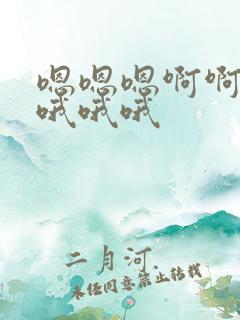 嗯嗯嗯啊啊
哦哦哦
二月河
未经同意禁止转载